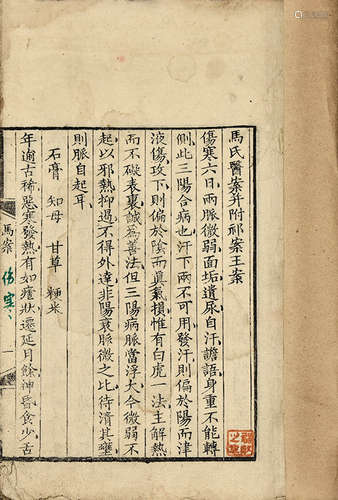 馬氏醫案并附祁案王案
傷寒六日兩脈微弱面垢遺尿自汗譫語身重不能轉
側此三陽合病也汗下兩不可用發汗則偏於陽而津
液傷攻下則偏於陰而眞氣損惟有白虎一法主解熱
而不礙表裏誠爲善法但三陽病脈當浮大今微弱不
起以邪熱抑遏不得外達非陽衰脈微之比待清其壅
則脈自起耳
石膏 知母 甘草 粳米
年逾古稀惡寒發熱有如瘧狀遷延月餘神昏食少舌
馬案
傷寒
一